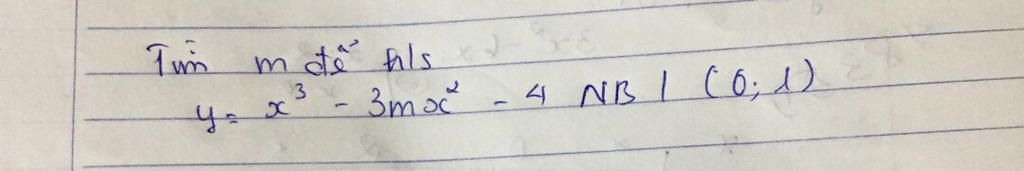 Tìm m để h/s
y = x³ - 3mx² - 4 NB / (0; 1)